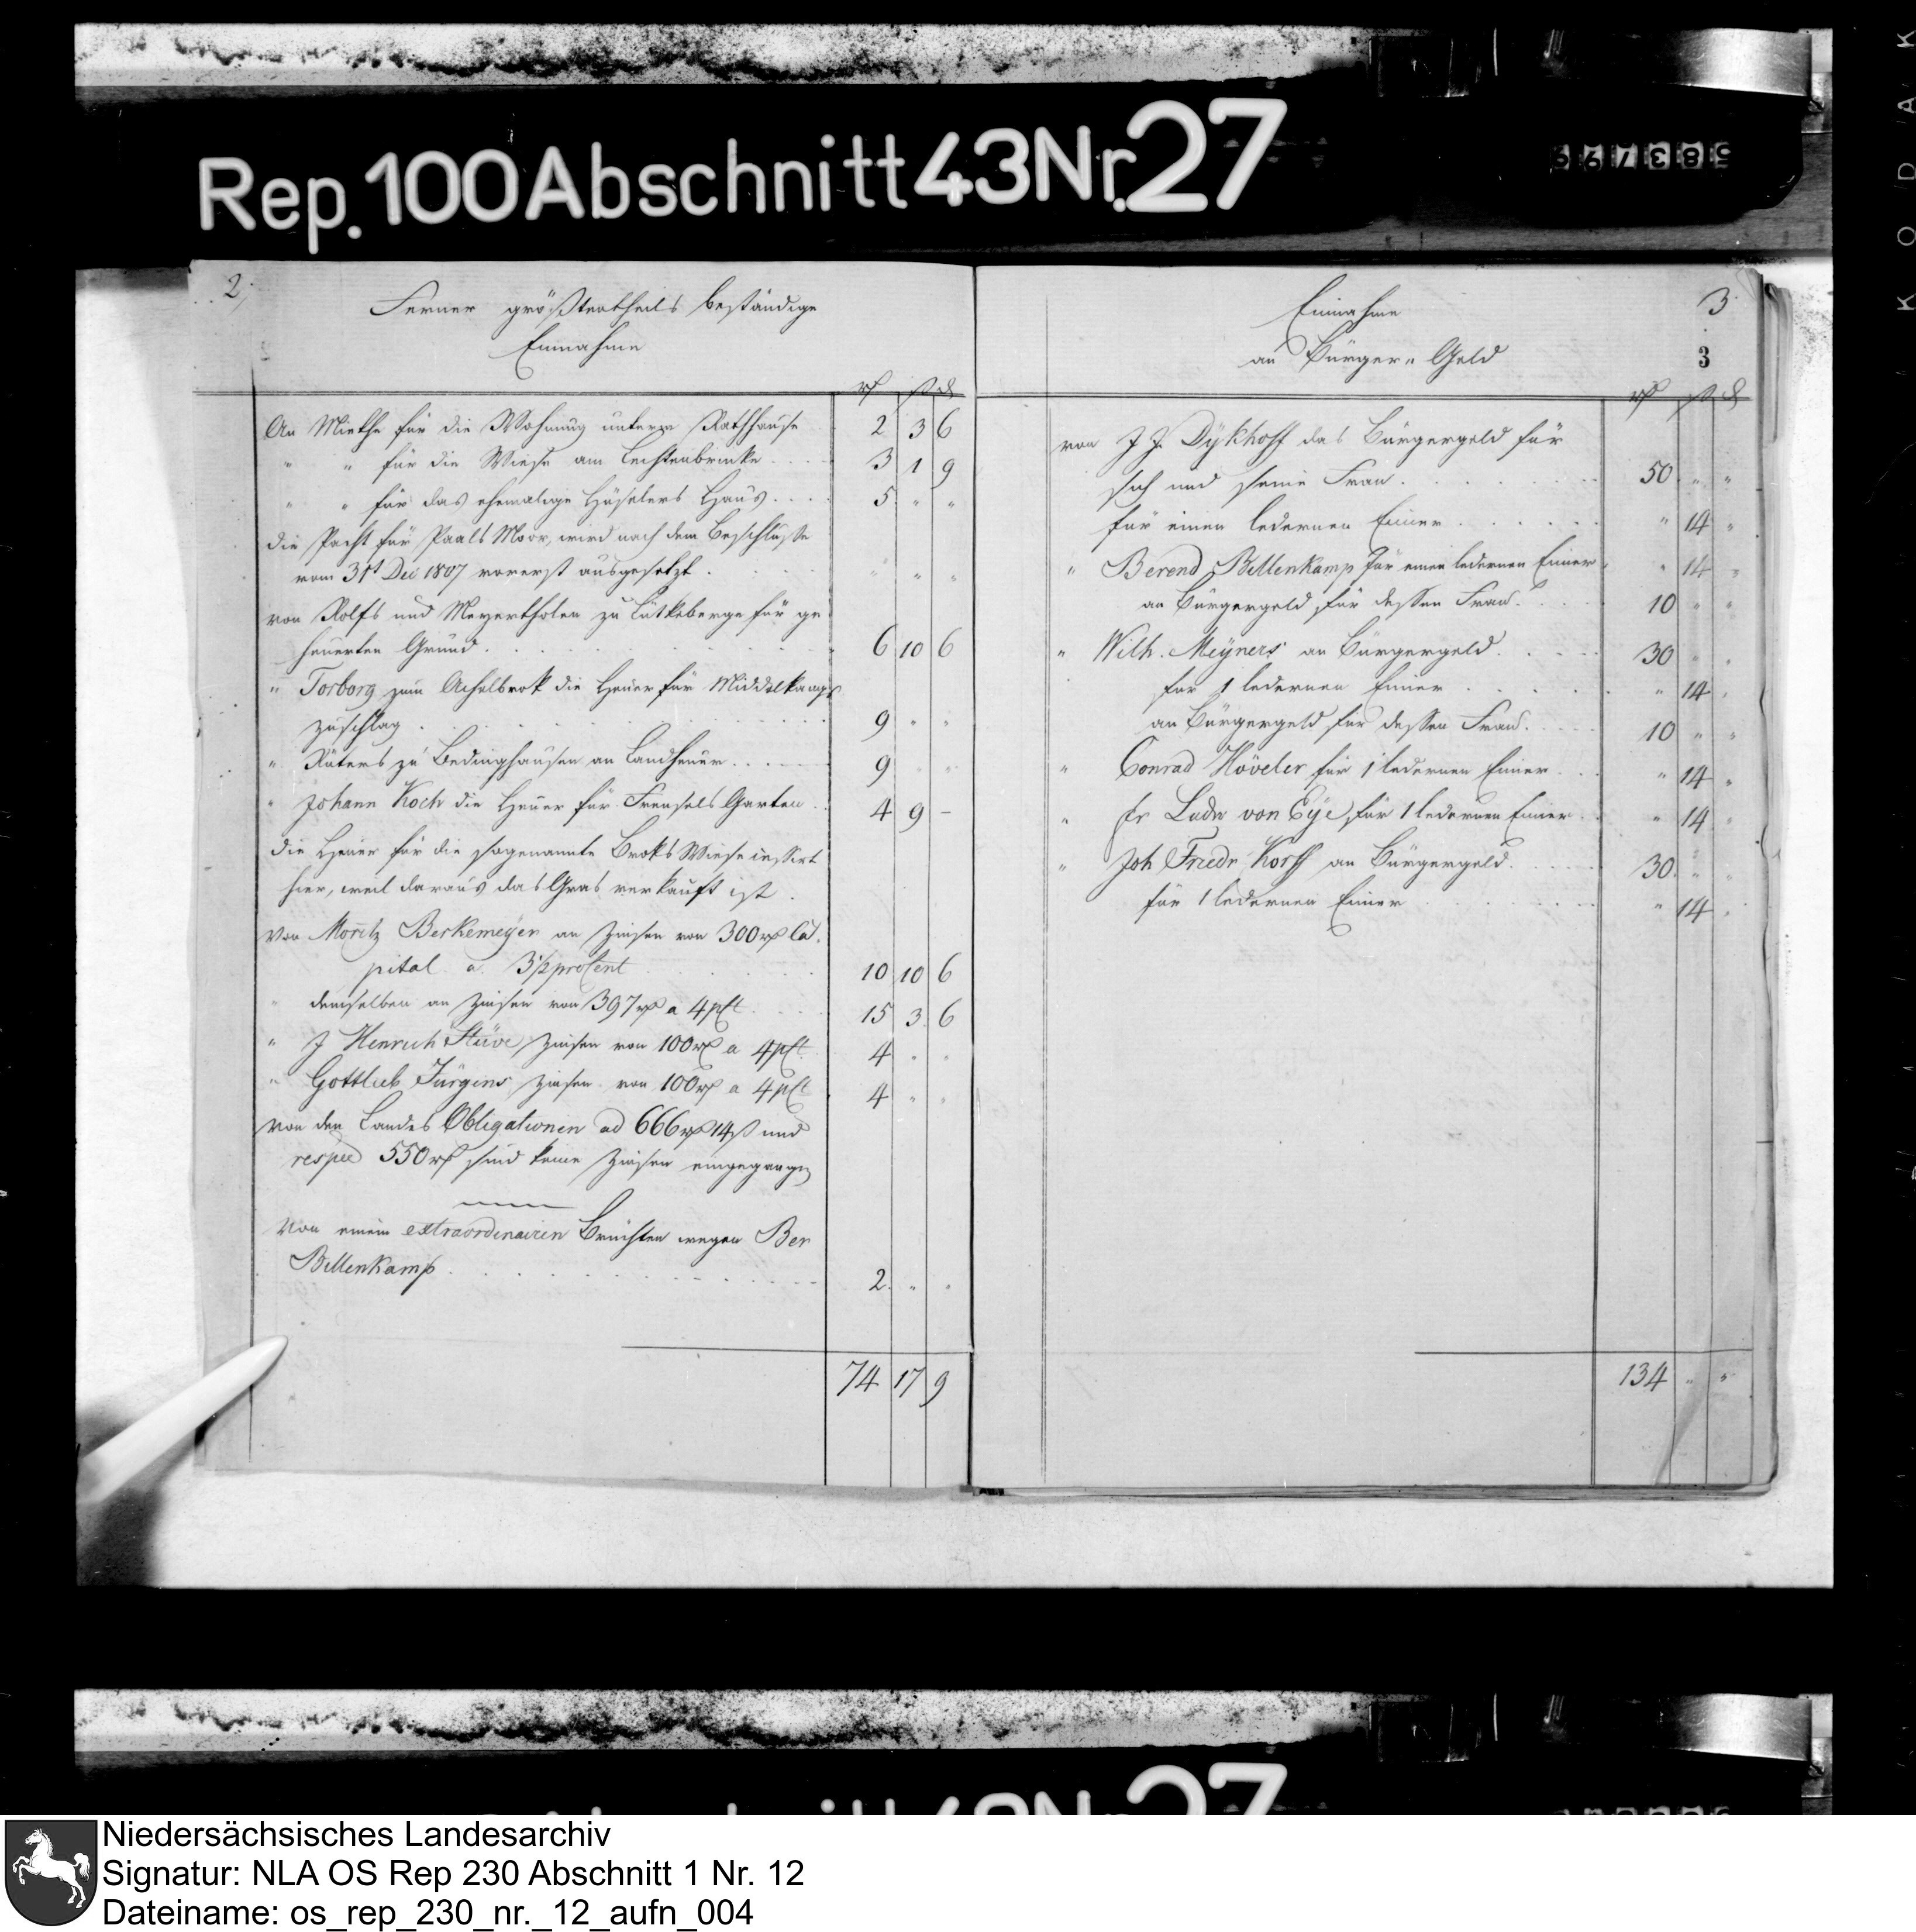 Rep. 100 Abschnitt 43 Nr. 27
583799
KODAK
2,
Ferner größtentheils beständige
Einnahme
rℓ ß ₰
An Miethe für die Wohnung unterm Rathhause 2 3 6
" " für die Wiese am Lechtenbrinke .... 3 1 9
" " für das ehemalige Häselers Haus .... 5 " "
die Pacht für Paals Moor, wird nach dem Beschlusse
vom 31t Dec 1807 vorerst ausgesetzt . " " "
von Rolfs und Meyertholen zu Lütkeberge für ge
heuerten Grund . 6 10 6
" Torborg zum Achelbrok die Heuer für Middelkamps
zuschlag . 9 " "
" Räters zu Bedinghausen an Landheuer .... 9 " "
" Johann Koch die Heuer für Frensels Garten . 4 9 –
die Heuer für die sogenannte Broks Wiese cessirt
hier, weil daraus das Gras verkauft ist .
Von Moritz Berkemeyer an Zinsen von 300 rℓ Ca
pital a. 3½ procent 10 10 6
" demselben an Zinsen von 397 rℓ a 4 pCt .... 15 3 6
" J Henrich Stüve Zinsen von 100 rℓ a 4 pCt 4 " "
" Gottlieb Jürgens Zinsen von 100 rℓ a 4 pCt 4 " "
von den Landes Obligationen ad 666 rℓ 14 ß und
respec 550 rℓ sind keine Zinsen eingegangen
Von einem extraordinairen Brüchten wegen Ber
Billenkamp . 2 " "
74 17 9
Einnahme
an Bürger= Geld
3
3
rℓ ß ₰
von J J. Dÿkhoff das Bürgergeld für
sich und seine Frau . 50 " "
für einen ledernen Eimer . " 14 "
" Berend Billenkamp für einen ledernen Eimer . " 14 "
an Bürgergeld für dessen Frau . 10 " "
" Wilh. Meÿners an Bürgergeld . 30 " "
für 1 ledernen Eimer . " 14 "
an Bürgergeld für dessen Frau . 10 " "
" Conrad Höveler für 1 ledernen Eimer . " 14 "
" Fr Ludw von Eÿe für 1 ledernen Eimer " 14 "
" Joh Friedr Korff an Bürgergeld . 30 " "
für 1 ledernen Eimer " 14 "
134 " "
Niedersächsisches Landesarchiv
Signatur: NLA OS Rep 230 Abschnitt 1 Nr. 12
Dateiname: os_rep_230_nr._12_aufn_004